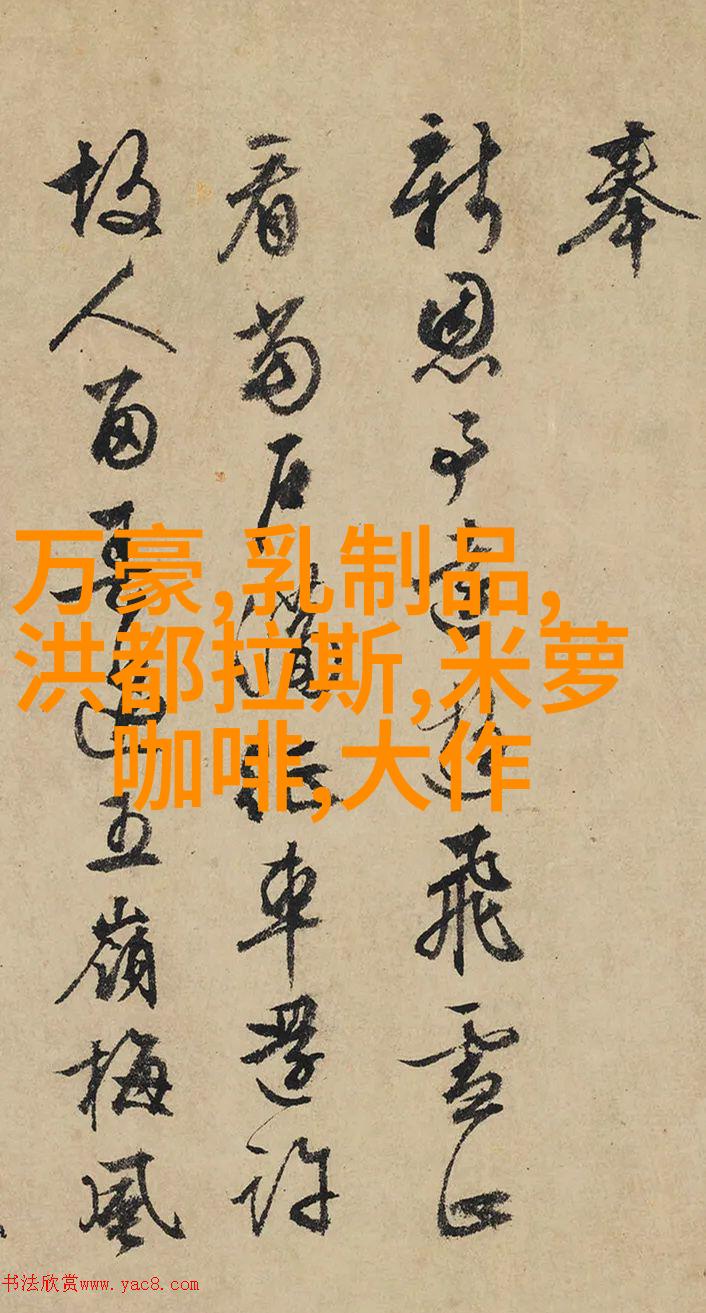 奉
新恩予飛雪正
看車還許
故人五嶺梅風
万豪,乳制品,
洪都拉斯,米萝
咖啡,大作
书法欣赏www.yac8.com